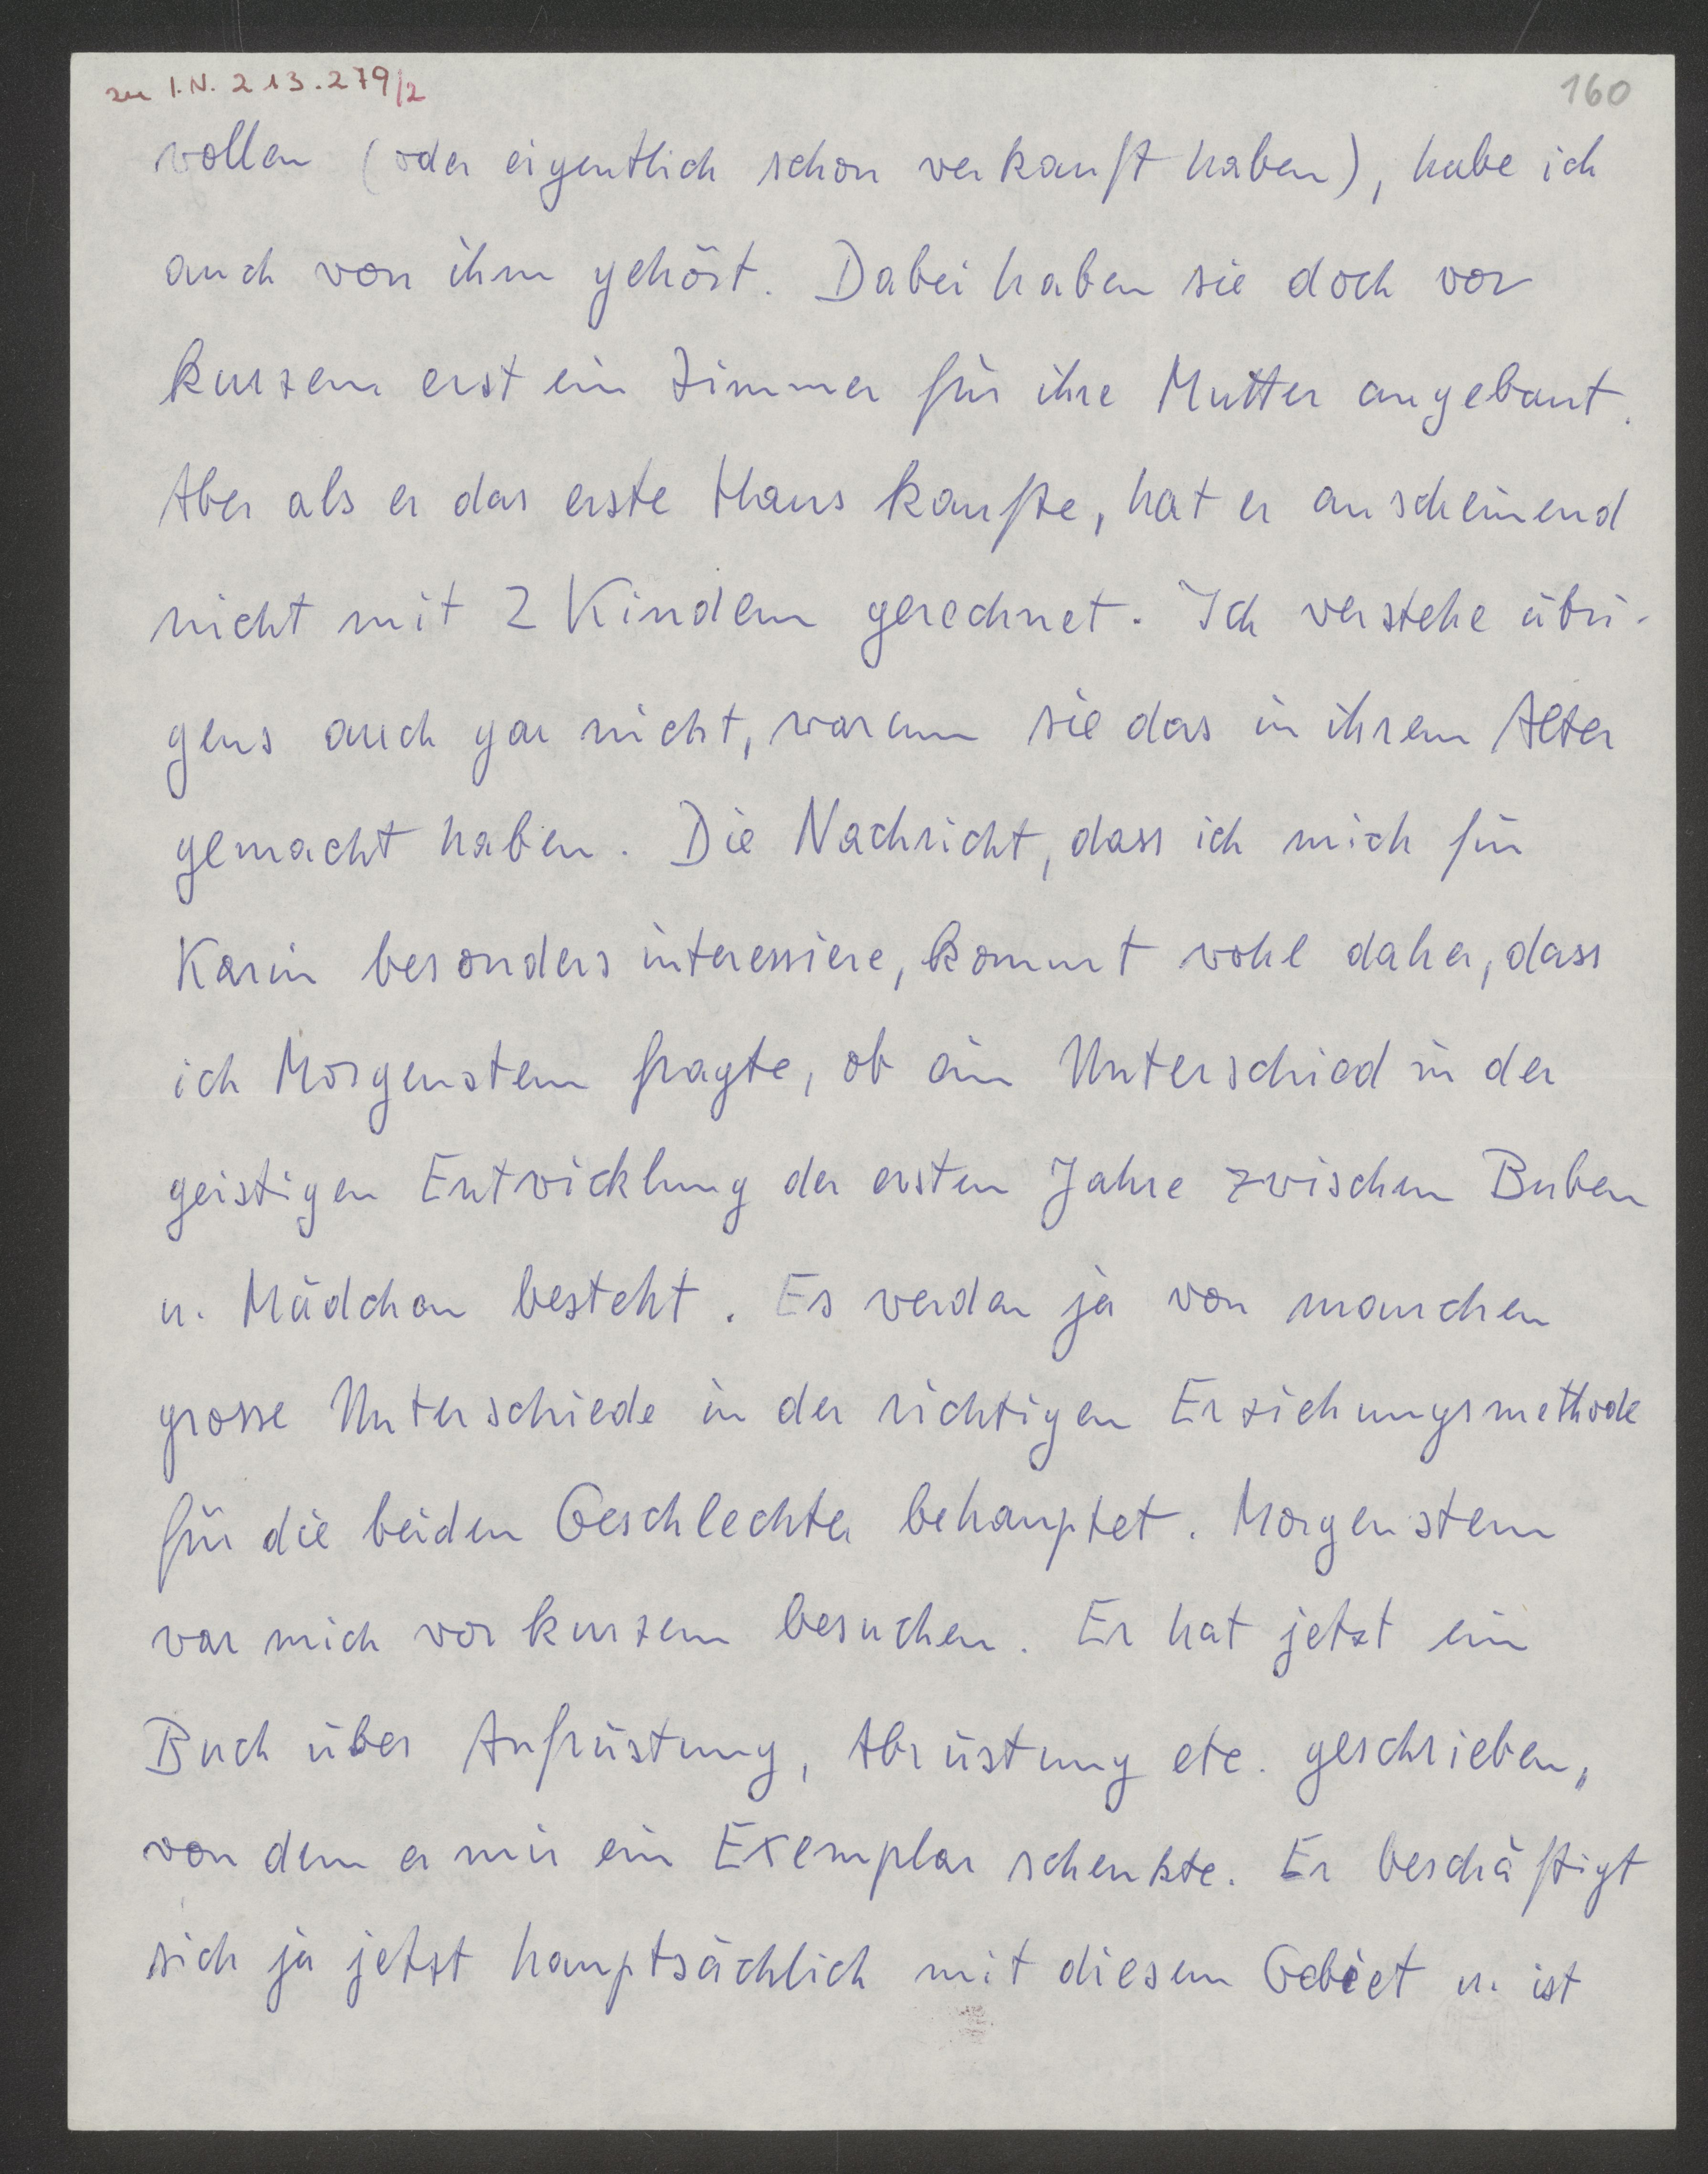 zu I.N. 213.279/2
160
wollen (oder eigentlich schon verkauft haben), habe ich
auch von ihm gehört. Dabei haben sie doch vor
kurzem erst ein Zimmer für ihre Mutter angebaut.
Aber als er das erste Haus kaufte, hat er anscheinend
nicht mit 2 Kindern gerechnet. Ich verstehe übri-
gens auch gar nicht, warum sie das in ihrem Alter
gemacht haben. Die Nachricht, dass ich mich für
Karin besonders interessiere, kommt wohl daher, dass
ich Morgenstern fragte, ob ein Unterschied in der
geistigen Entwicklung der ersten Jahre zwischen Buben
u. Mädchen besteht. Es werden ja von manchen
grosse Unterschiede in der richtigen Erziehungsmethode
für die beiden Geschlechter behauptet. Morgenstern
war mich vor kurzem besuchen. Er hat jetzt ein
Buch über Aufrüstung, Abrüstung etc. geschrieben,
von dem er mir ein Exemplar schenkte. Er beschäftigt
sich ja jetzt hauptsächlich mit diesem Gebiet u. ist